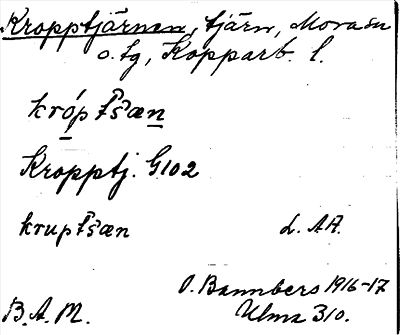 Kropptjärnen, tjärn, Mora sn
o. tg, Kopparb. l.
króptšæn
Kropptj. G102
kruptšæn L. AA.
O. Bannbers 1916-17
B. A. M. Ulma 310.